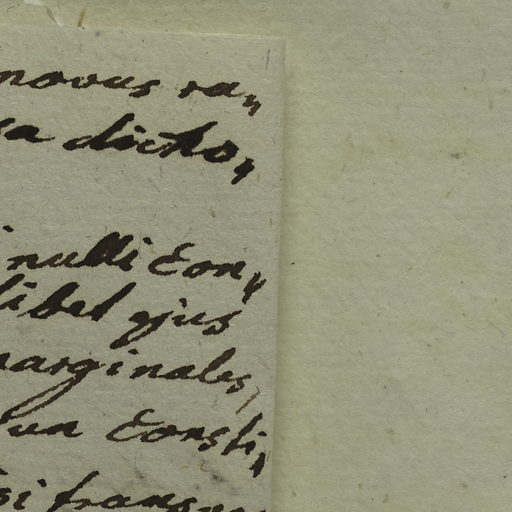 novus ra„
sa dicto„
nulli Con„
libet ejus
marginales,
un Consti„
si frans